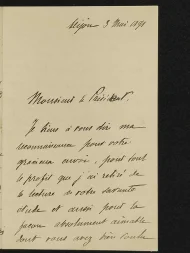 Dijon 3 Mai 1898
Monsieur le Président,
Je tiens à vous dire ma
reconnaissance pour votre
gracieux envoi, pour tout
le profit que j'ai retiré de
la lecture de votre savante
étude et aussi pour la
façon absolument aimable
dont vous avez bien voulu